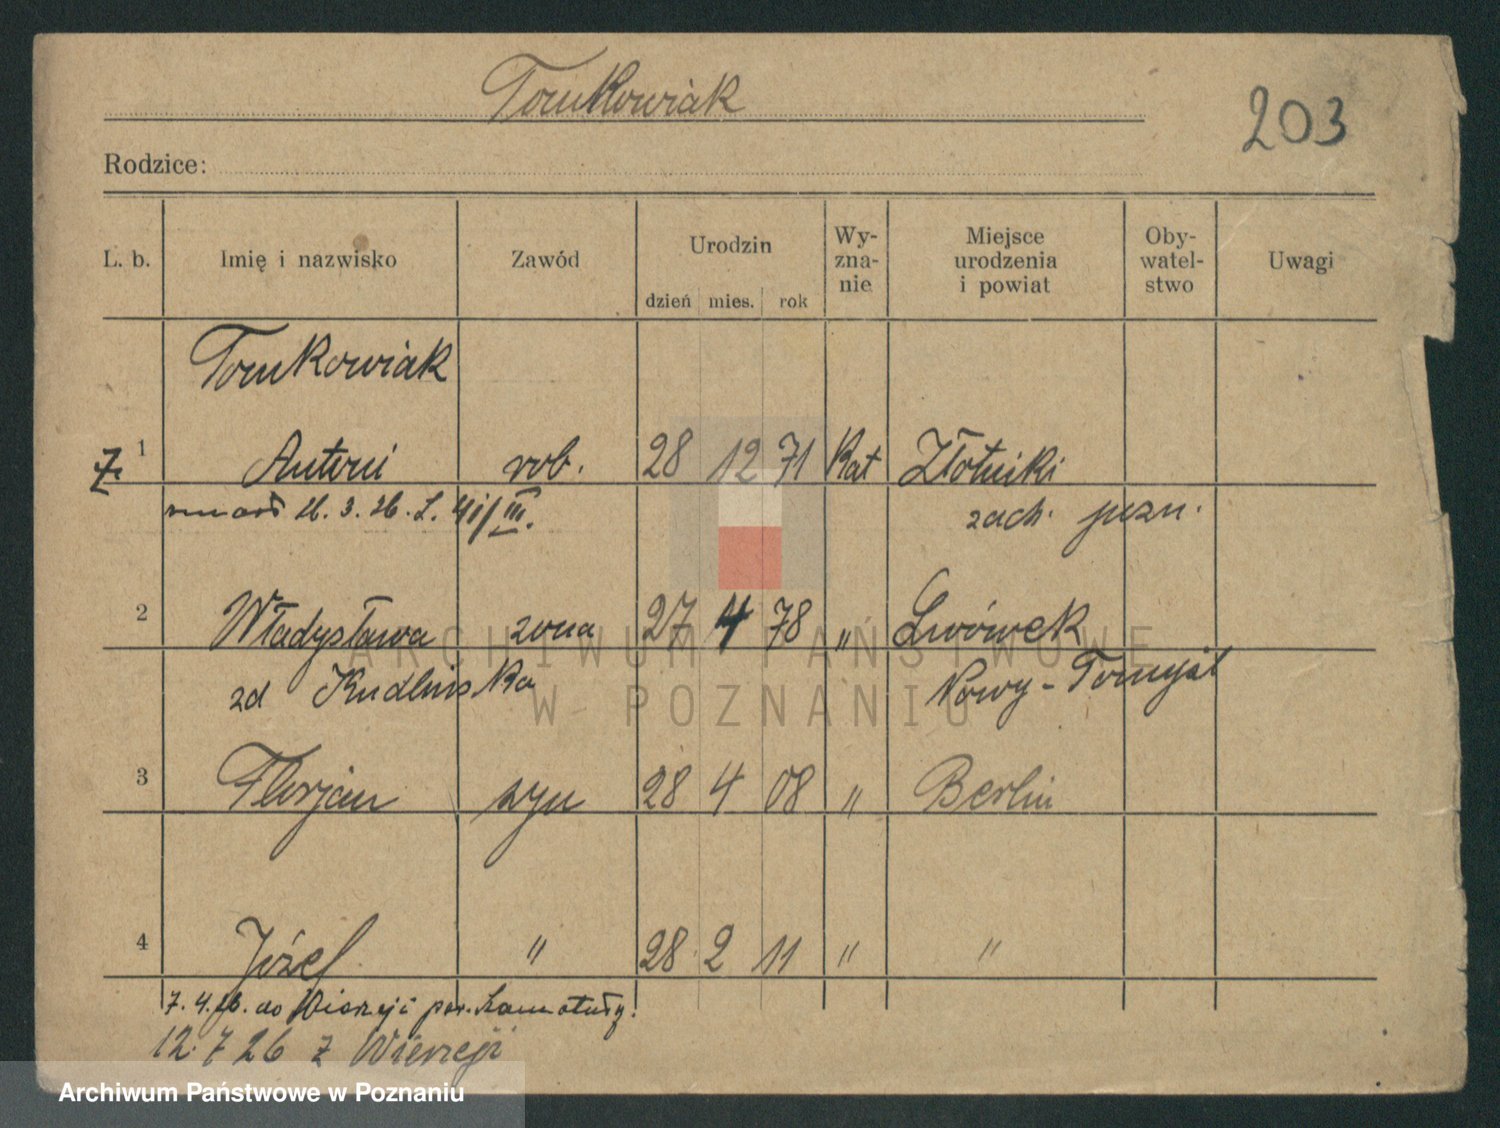 Tomkowiak
203
Rodzice:
L. b. Imię i nazwisko Zawód Urodzin dzień mies. rok Wy-zna-nie Miejsce urodzenia i powiat Oby-watel-stwo Uwagi
Tomkowiak
1 Antoni rob. 28 12 71 Kat Złotniki
zmarł 3. 26. L. 41/III. zach. pozn.
2 Władysława zona 27 4 78 " Lwówek
zd Kudlinska Nowy-Tomyśl
3 Florjan syn 28 4 08 " Berlin
4 Józef " 28 2 11 " "
7. 4. 26. do Wierzeji pow. Szamotuły.
12. 7 26 z Wierzeji
ARCHIWUM PAŃSTWOWE
W POZNANIU
Archiwum Państwowe w Poznaniu